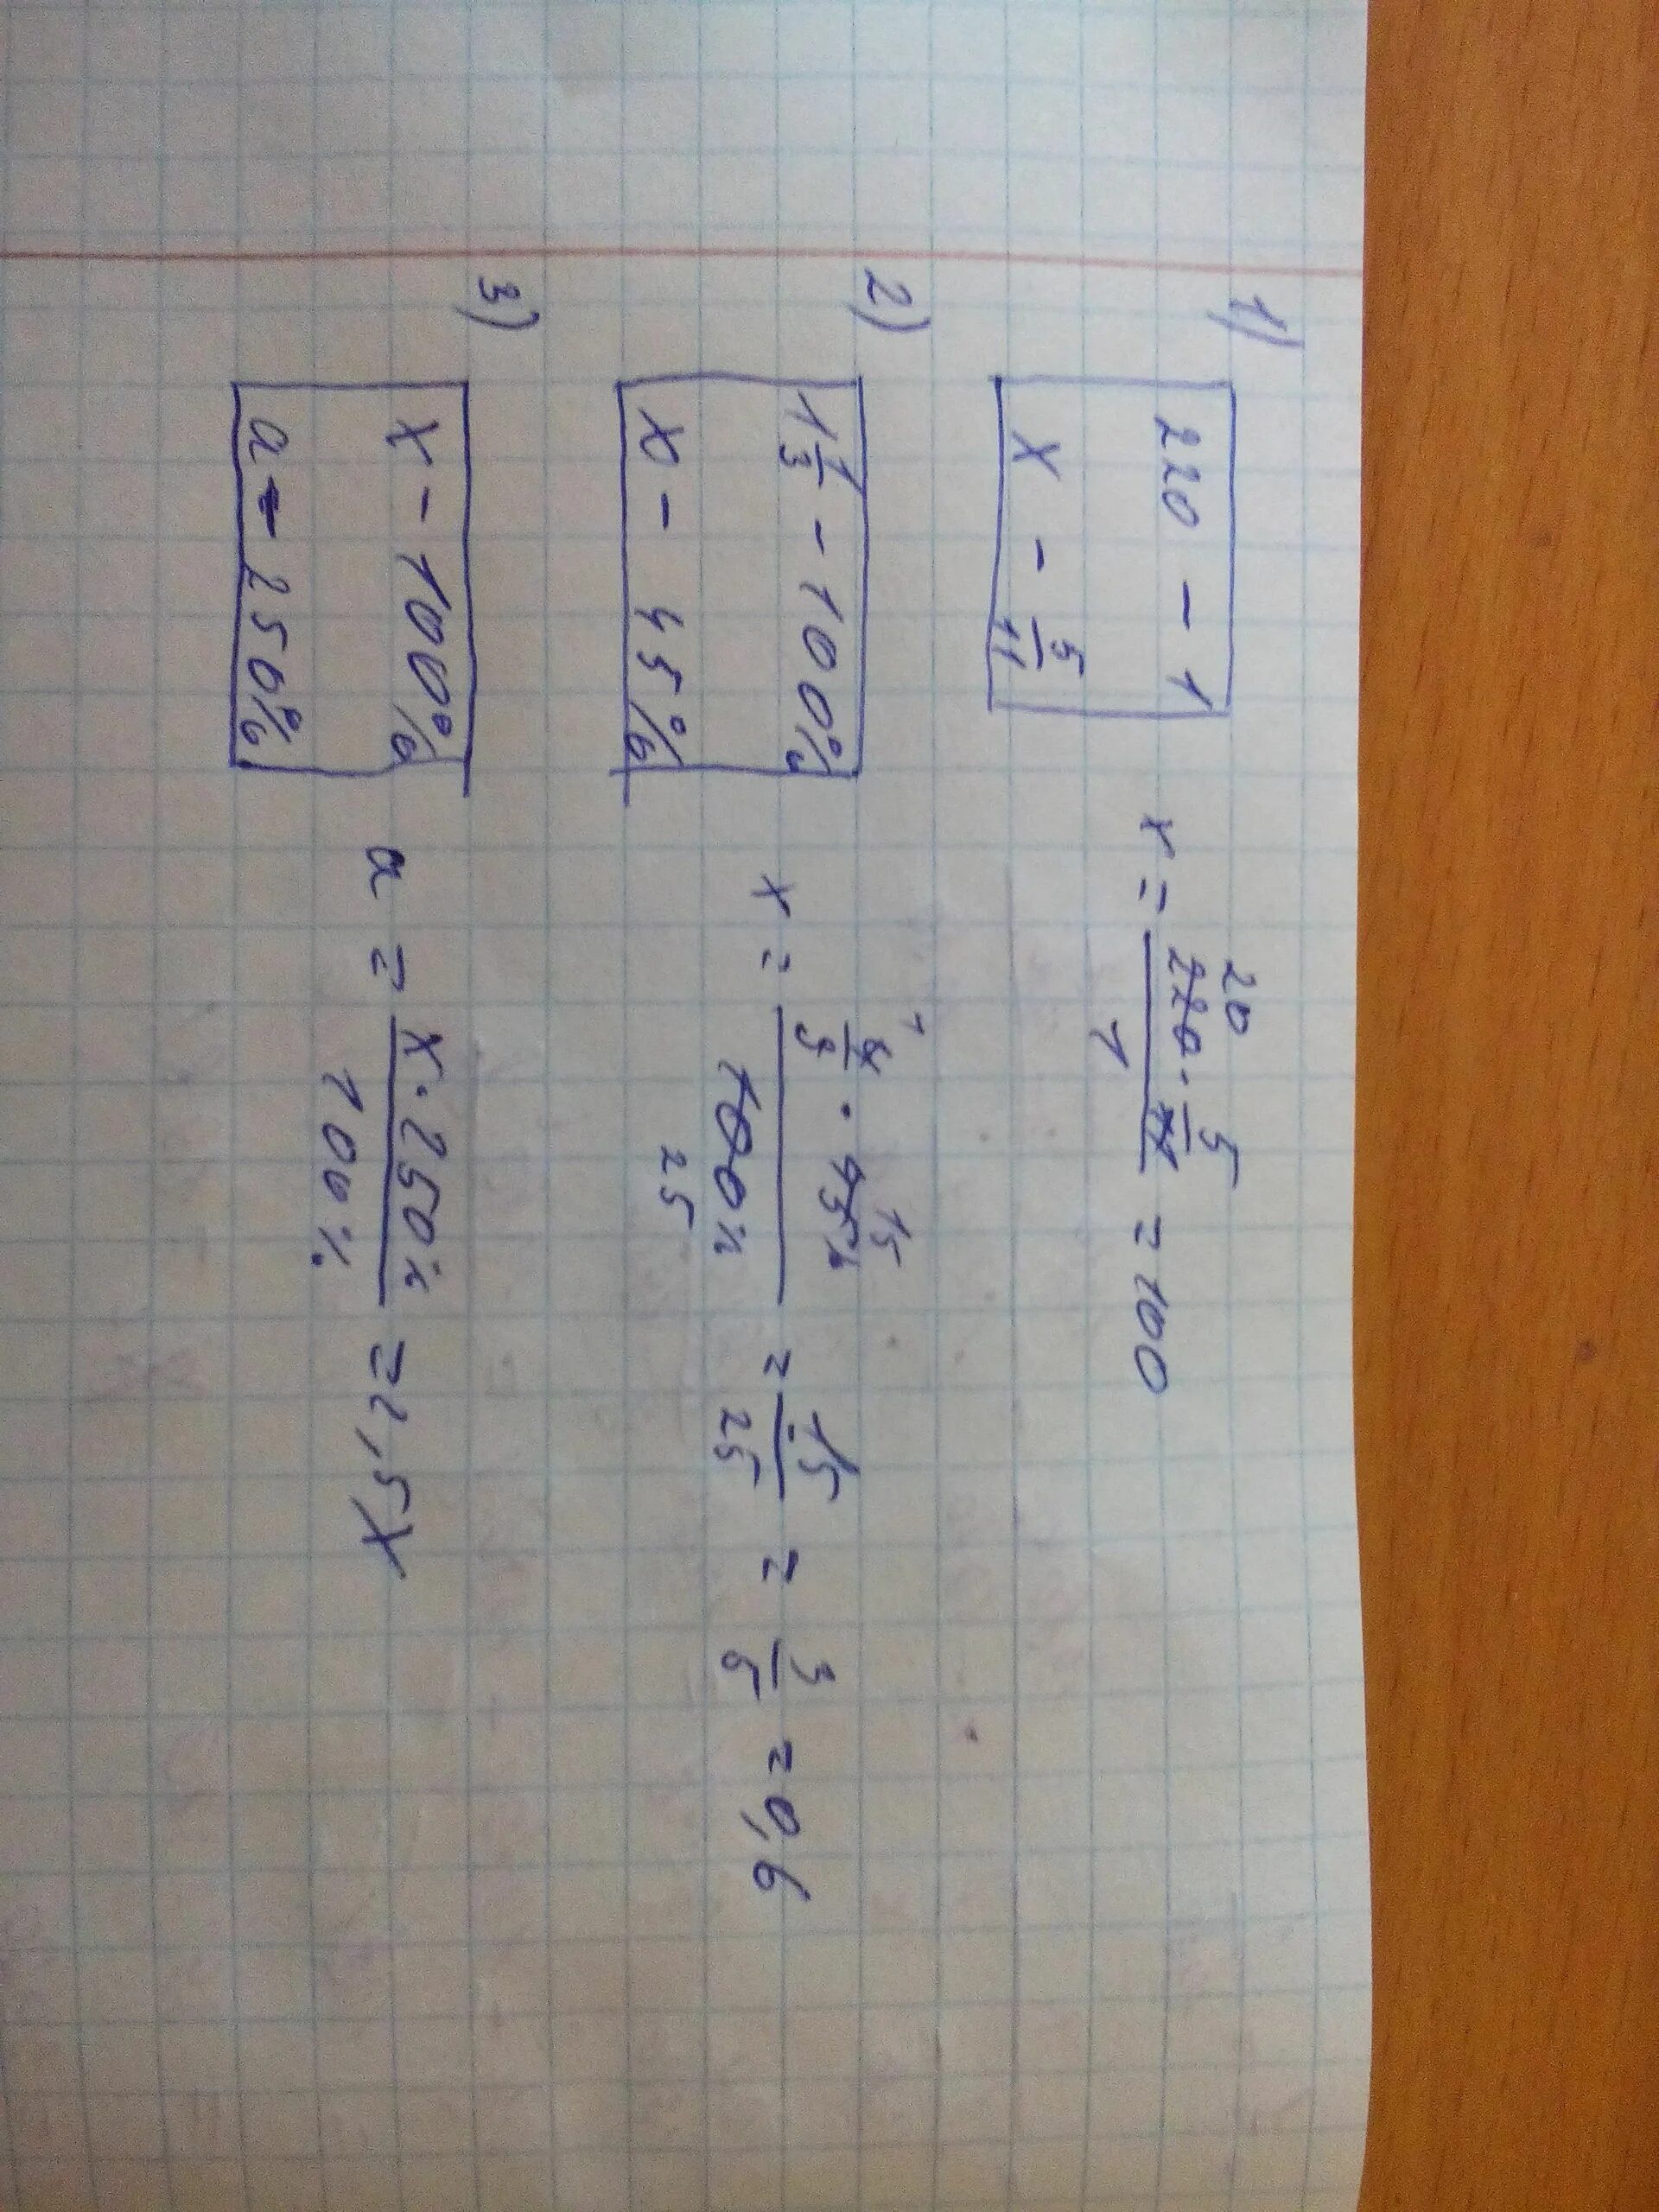 1) 220 - 1
x - 5/11
x = 220 · 5/11 / 1 = 100
20
2) 1 1/3 - 100%
x - 45%
x = 4/3 · 45% / 100% = 15/25 = 3/5 = 0,6
1 15
25
3) x - 100%
a - 250%
a = x · 250% / 100% = 2,5x